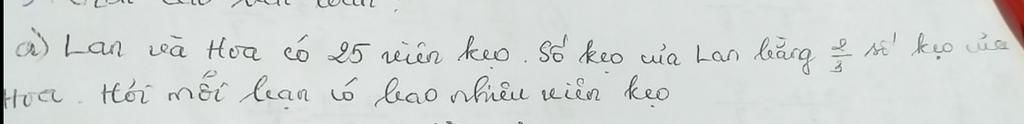 a) Lan và Hoa có 25 viên kẹo. Số kẹo của Lan bằng 2/3 số kẹo của
Hoa. Hỏi mỗi bạn có bao nhiêu viên kẹo